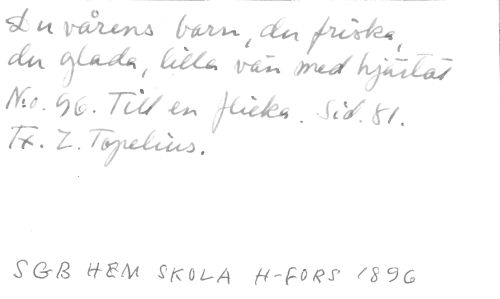 Du vårens barn, du friska,
du glada, lilla vän med hjärtat
No. 96. Till en flicka. Sid. 81.
Tx. Z. Topelius.
SGB HEM SKOLA H-FORS 1896